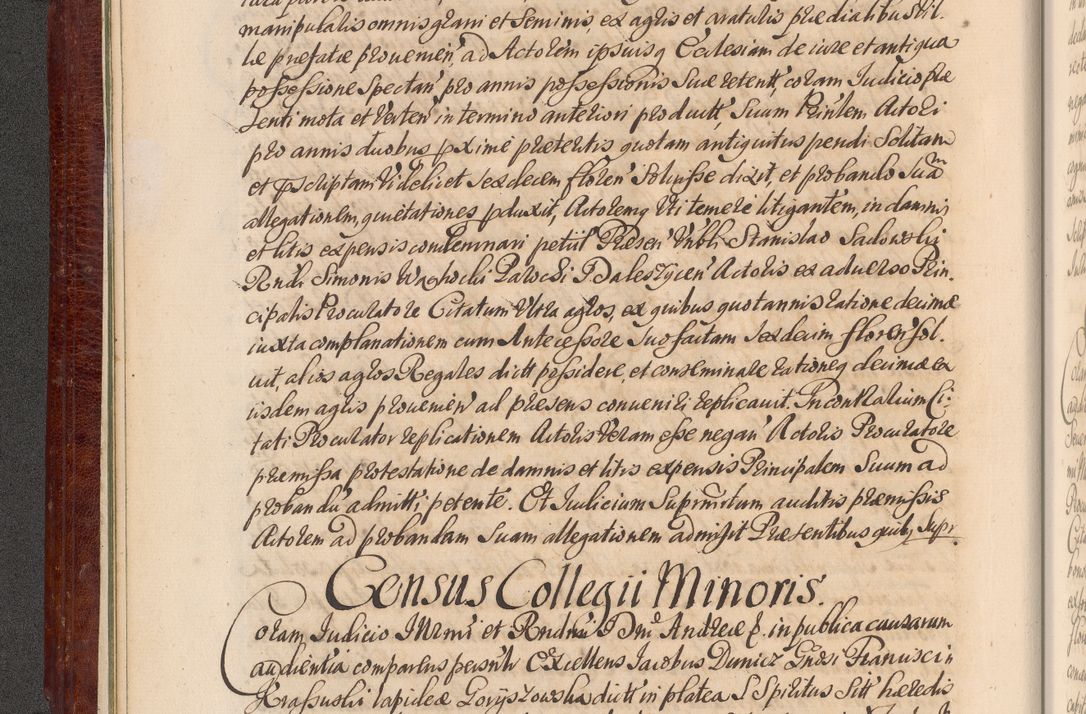 manipulatis omnis grani et seminis, ex agris et aratulis prædialibus vil-
læ præfatæ prouenien̄, ad Actorem ipsiusq Ecclesiam de iure et antiqua
possessione spectan̄ pro annis possessionis suæ retent̄, coram Iudicio præ
senti mota et verten̄ in termino anteriori produit̄, suum Prinlem Actori
pro annis duobus pxime præteritis quotam antiquitus pendi solitam
et pscriptam videlicet sexdecem floren̄ soluisse dixit, et probando suam
allegationem, quietationes pduxit, Actoremq uti temere litigantem, in damnis
et litis expensis condemnari petiit Præsen̄ Nrbli Stanislao Sadowski
Rndi Simonis Parochi Daleszycen̄ Actoris ex aduerso Prin-
cipalis Procuratore Citatum ultra agros, ex quibus quotannis ratione decimæ
iuxta complanationem cum Antecessore suo factam sexdecim floren̄ sol-
uit, alios agros Regales dict̄ possidere, et conseminare rationeq decimæ ex
iisdem agris prouenien̄ ad præsens conueniri replicauit. In contrarium Ci-
tati Procurator replicationem Actoris veram esse negan̄ Actoris Procuratore
præmissa protestatione de damnis et litis expensis Principalem suum ad
probandū admitti petente. Et Iudicium Suprmitum auditis præmissis
Actorem ad probandam suam allegationem admisit Præsentibus quib, supr.
Census Collegii Minoris.
Coram Iudicio Illrmi et Rndmi Dni Andreæ E. in publica causarum
audientia comparens personlr Excellens Iacobus Dunicz Gnosi Francisci
Krassuski lapideæ Goryszowska dict̄ in platea S. Spiritus sit̄ hæredis